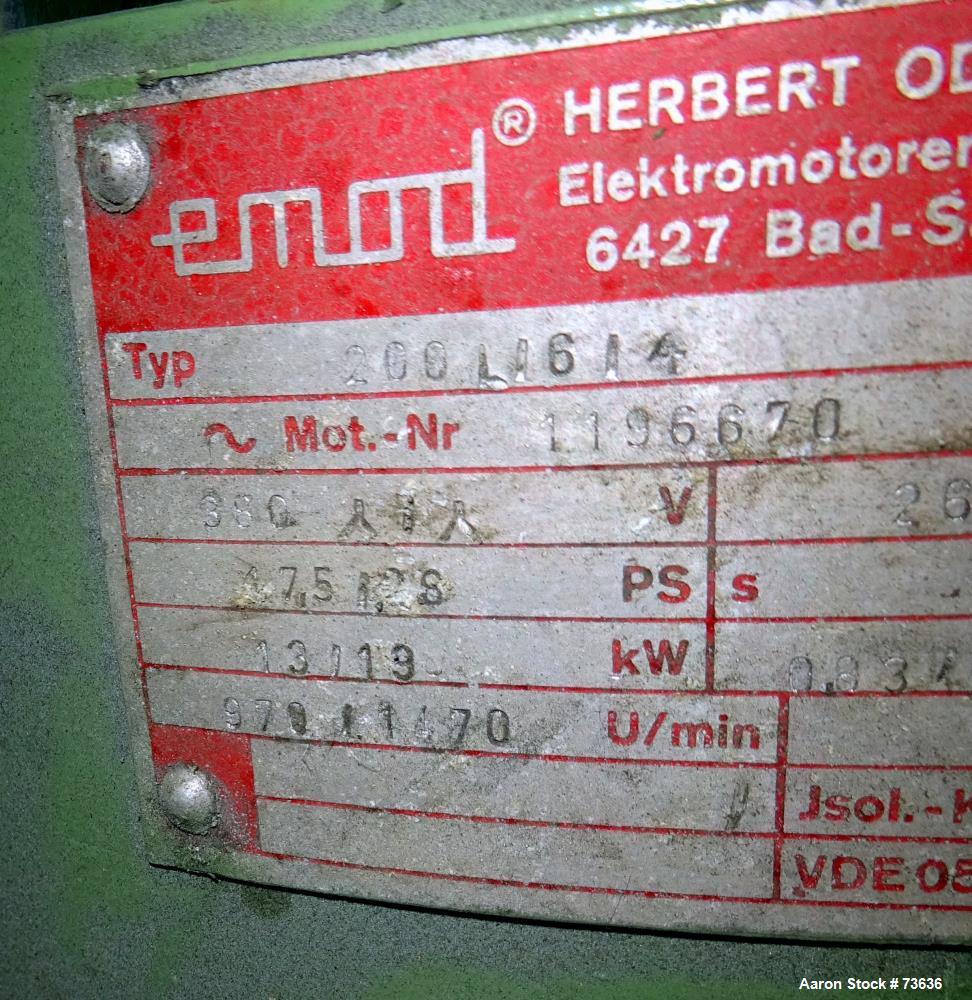 emod ® HERBERT OD
Elektromotoren
6427 Bad-S
Typ 200 L/6/4
~ Mot.-Nr 1196670
380 V 26
PS s
13/19 kW
970/1470 U/min
Jsol.-K
VDE 05
Aaron Stock # 73636